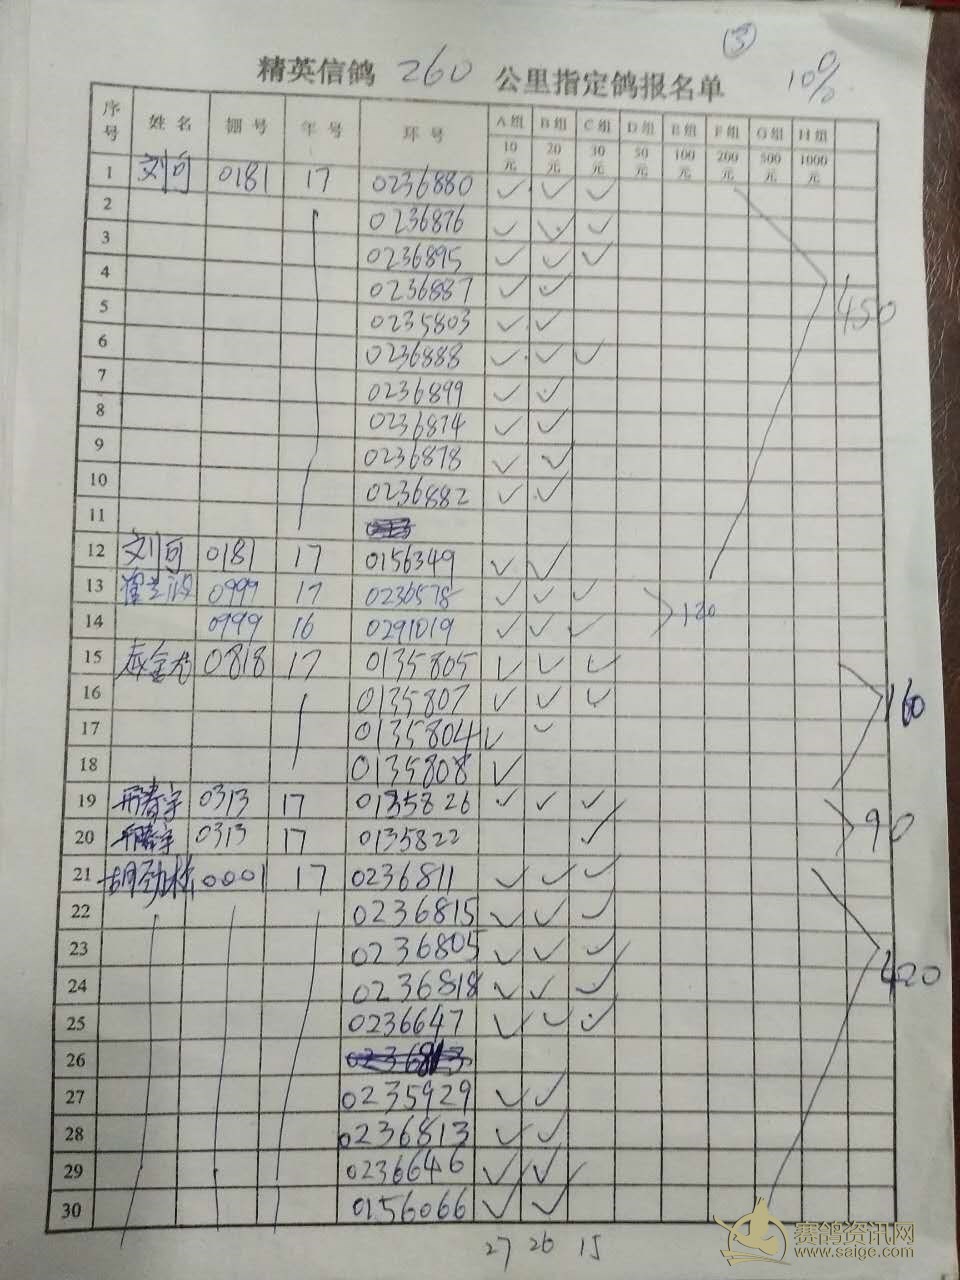 ③
精英信鸽 260 公里指定鸽报名单 10%
序号 姓名 棚号 年号 环号 A组 B组 C组 D组 E组 F组 G组 H组
10元 20元 30元 50元 100元 200元 500元 1000元
1 刘可 0181 17 0236880 ✓ ✓ ✓
2 0236876 ✓ ✓ ✓
3 0236895 ✓ ✓ ✓
4 0236887 ✓ ✓
450
5 0235803 ✓ ✓
6 0236888 ✓ ✓ ✓
7 0236899 ✓ ✓
8 0236874 ✓ ✓
9 0236878 ✓ ✓
10 0236882 ✓ ✓
11
12 刘可 0181 17 0156349 ✓ ✓
13 0999 17 0236578 ✓ ✓ ✓
120
14 0999 16 0291019 ✓ ✓ ✓
15 0818 17 0135805 ✓ ✓ ✓
16 0135807 ✓ ✓ ✓
160
17 0135804 ✓ ✓
18 0135808 ✓
19 邢春宇 0313 17 0135826 ✓ ✓ ✓
90
20 邢春宇 0313 17 0135822 ✓
21 胡劲松 0001 17 0236811 ✓ ✓ ✓
22 0236815 ✓ ✓ ✓
23 0236805 ✓ ✓ ✓
420
24 0236818 ✓ ✓ ✓
25 0236647 ✓ ✓ ✓
26 0236813
27 0235929 ✓ ✓
28 0236813 ✓ ✓
29 0236646 ✓ ✓
30 0156066 ✓ ✓
27 26 15
赛鸽资讯网
www.saige.com